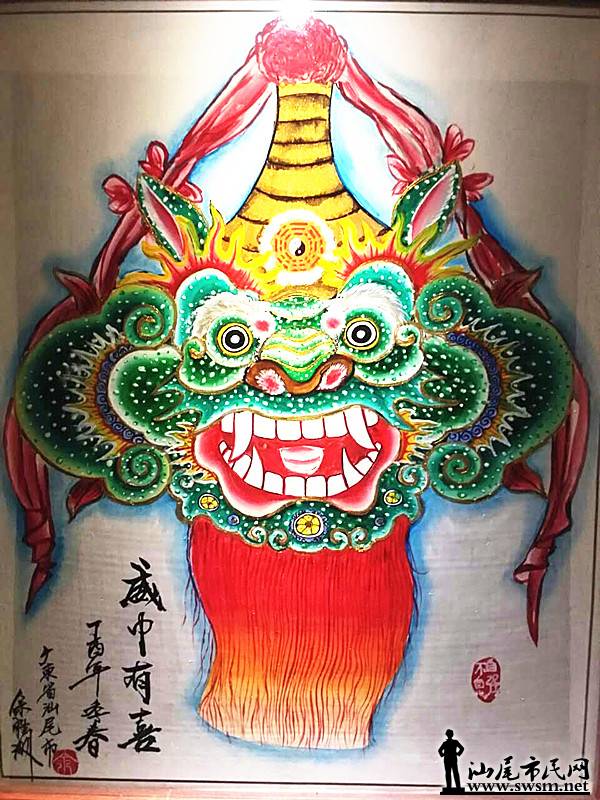 威中有喜
丁酉年春
广东省汕尾市
汕尾市民网
www.swsm.net